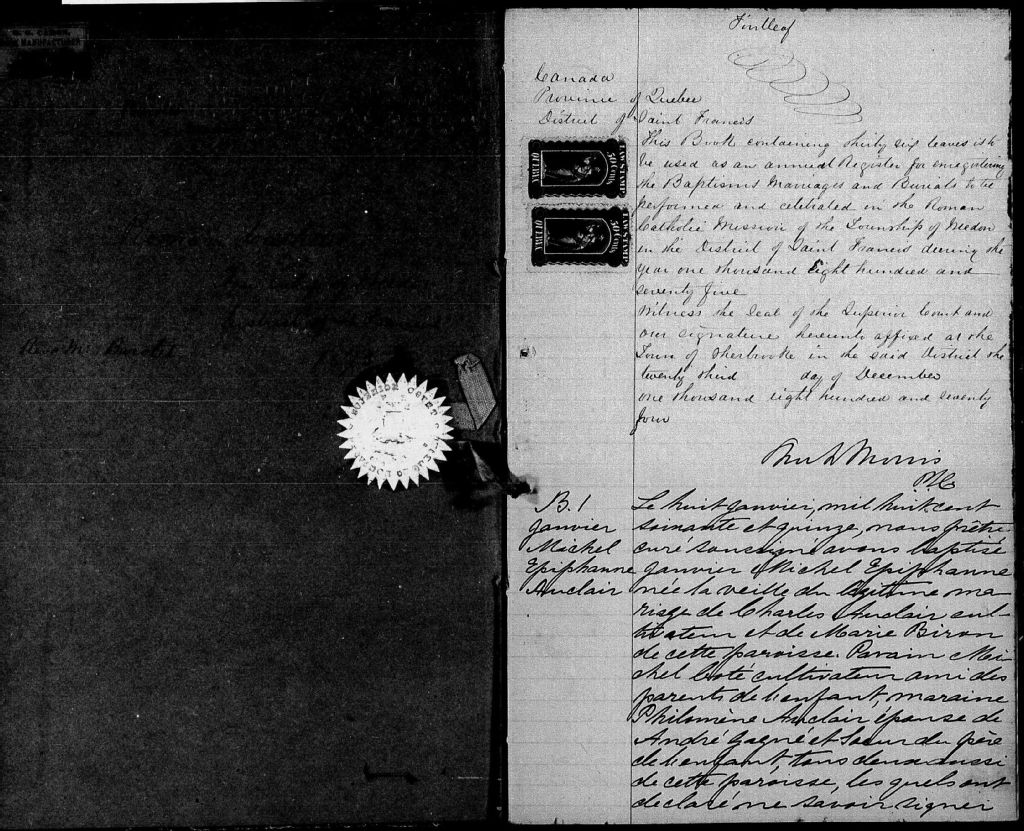 BOOK MANUFACTURER
SUPERIOR COURT
Canada
Province of Quebec
District of Saint Francis
This Book containing thirty six leaves is to
be used as an annual Register for enregistering
the Baptisms Marriages and Burials to be
performed and celebrated in the Roman
Catholic Mission of the Township of Weedon
in the District of Saint Francis deering the
year one thousand Eight hundred and
seventy five
Witness the Seal of the Superior Court and
our signature hereunto affixed at the
Town of Sherbrooke in the said District the
twenty third day of December
one thousand eight hundred and seventy
four
LAW STAMP
50 CENTS
QUEBEC
LAW STAMP
50 CENTS
QUEBEC
Morris
B. 1
Janvier
Michel
Epiphanne
Auclair
Le huit janvier, mil huit cent
soixante et quinze, nous prêtre
curé soussigné avons baptisé
Janvier Michel Epiphanne
née la veille du légitime ma
riage de Charles Auclair cul
tivateur et de Marie Biron
de cette paroisse. Parain Mi
chel cultivateur ami des
parents de l'enfant, maraine
Philomène Auclair épouse de
André Gagné et soeur du père
de l'enfant tous deux aussi
de cette paroisse, les quels ont
declaré ne savoir signer